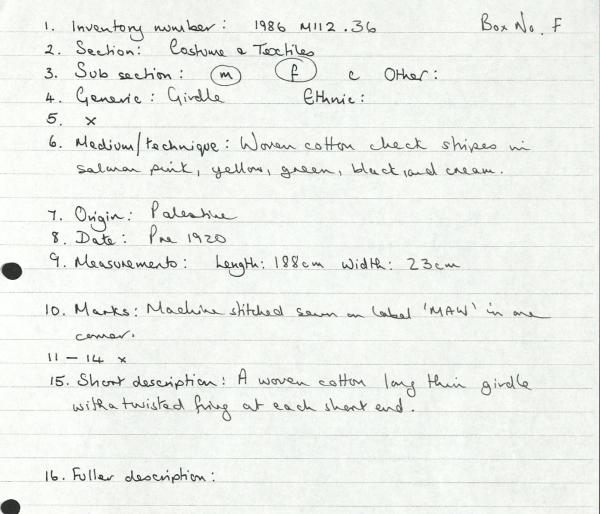 1. Inventory number: 1986 M112.36 Box No. F
2. Section: Costume & Textiles
3. Sub section: m f c Other:
4. Generic: Girdle Ethnic:
5. x
6. Medium/technique: Woven cotton check stripes in
salmon pink, yellow, green, black, and cream.
7. Origin: Palestine
8. Date: Pre 1920
9. Measurements: Length: 188cm Width: 23cm
10. Marks: Machine stitched sewn on label 'MAW' in one
corner.
11 - 14 x
15. Short description: A woven cotton long thin girdle
with a twisted fring at each short end.
16. Fuller description: